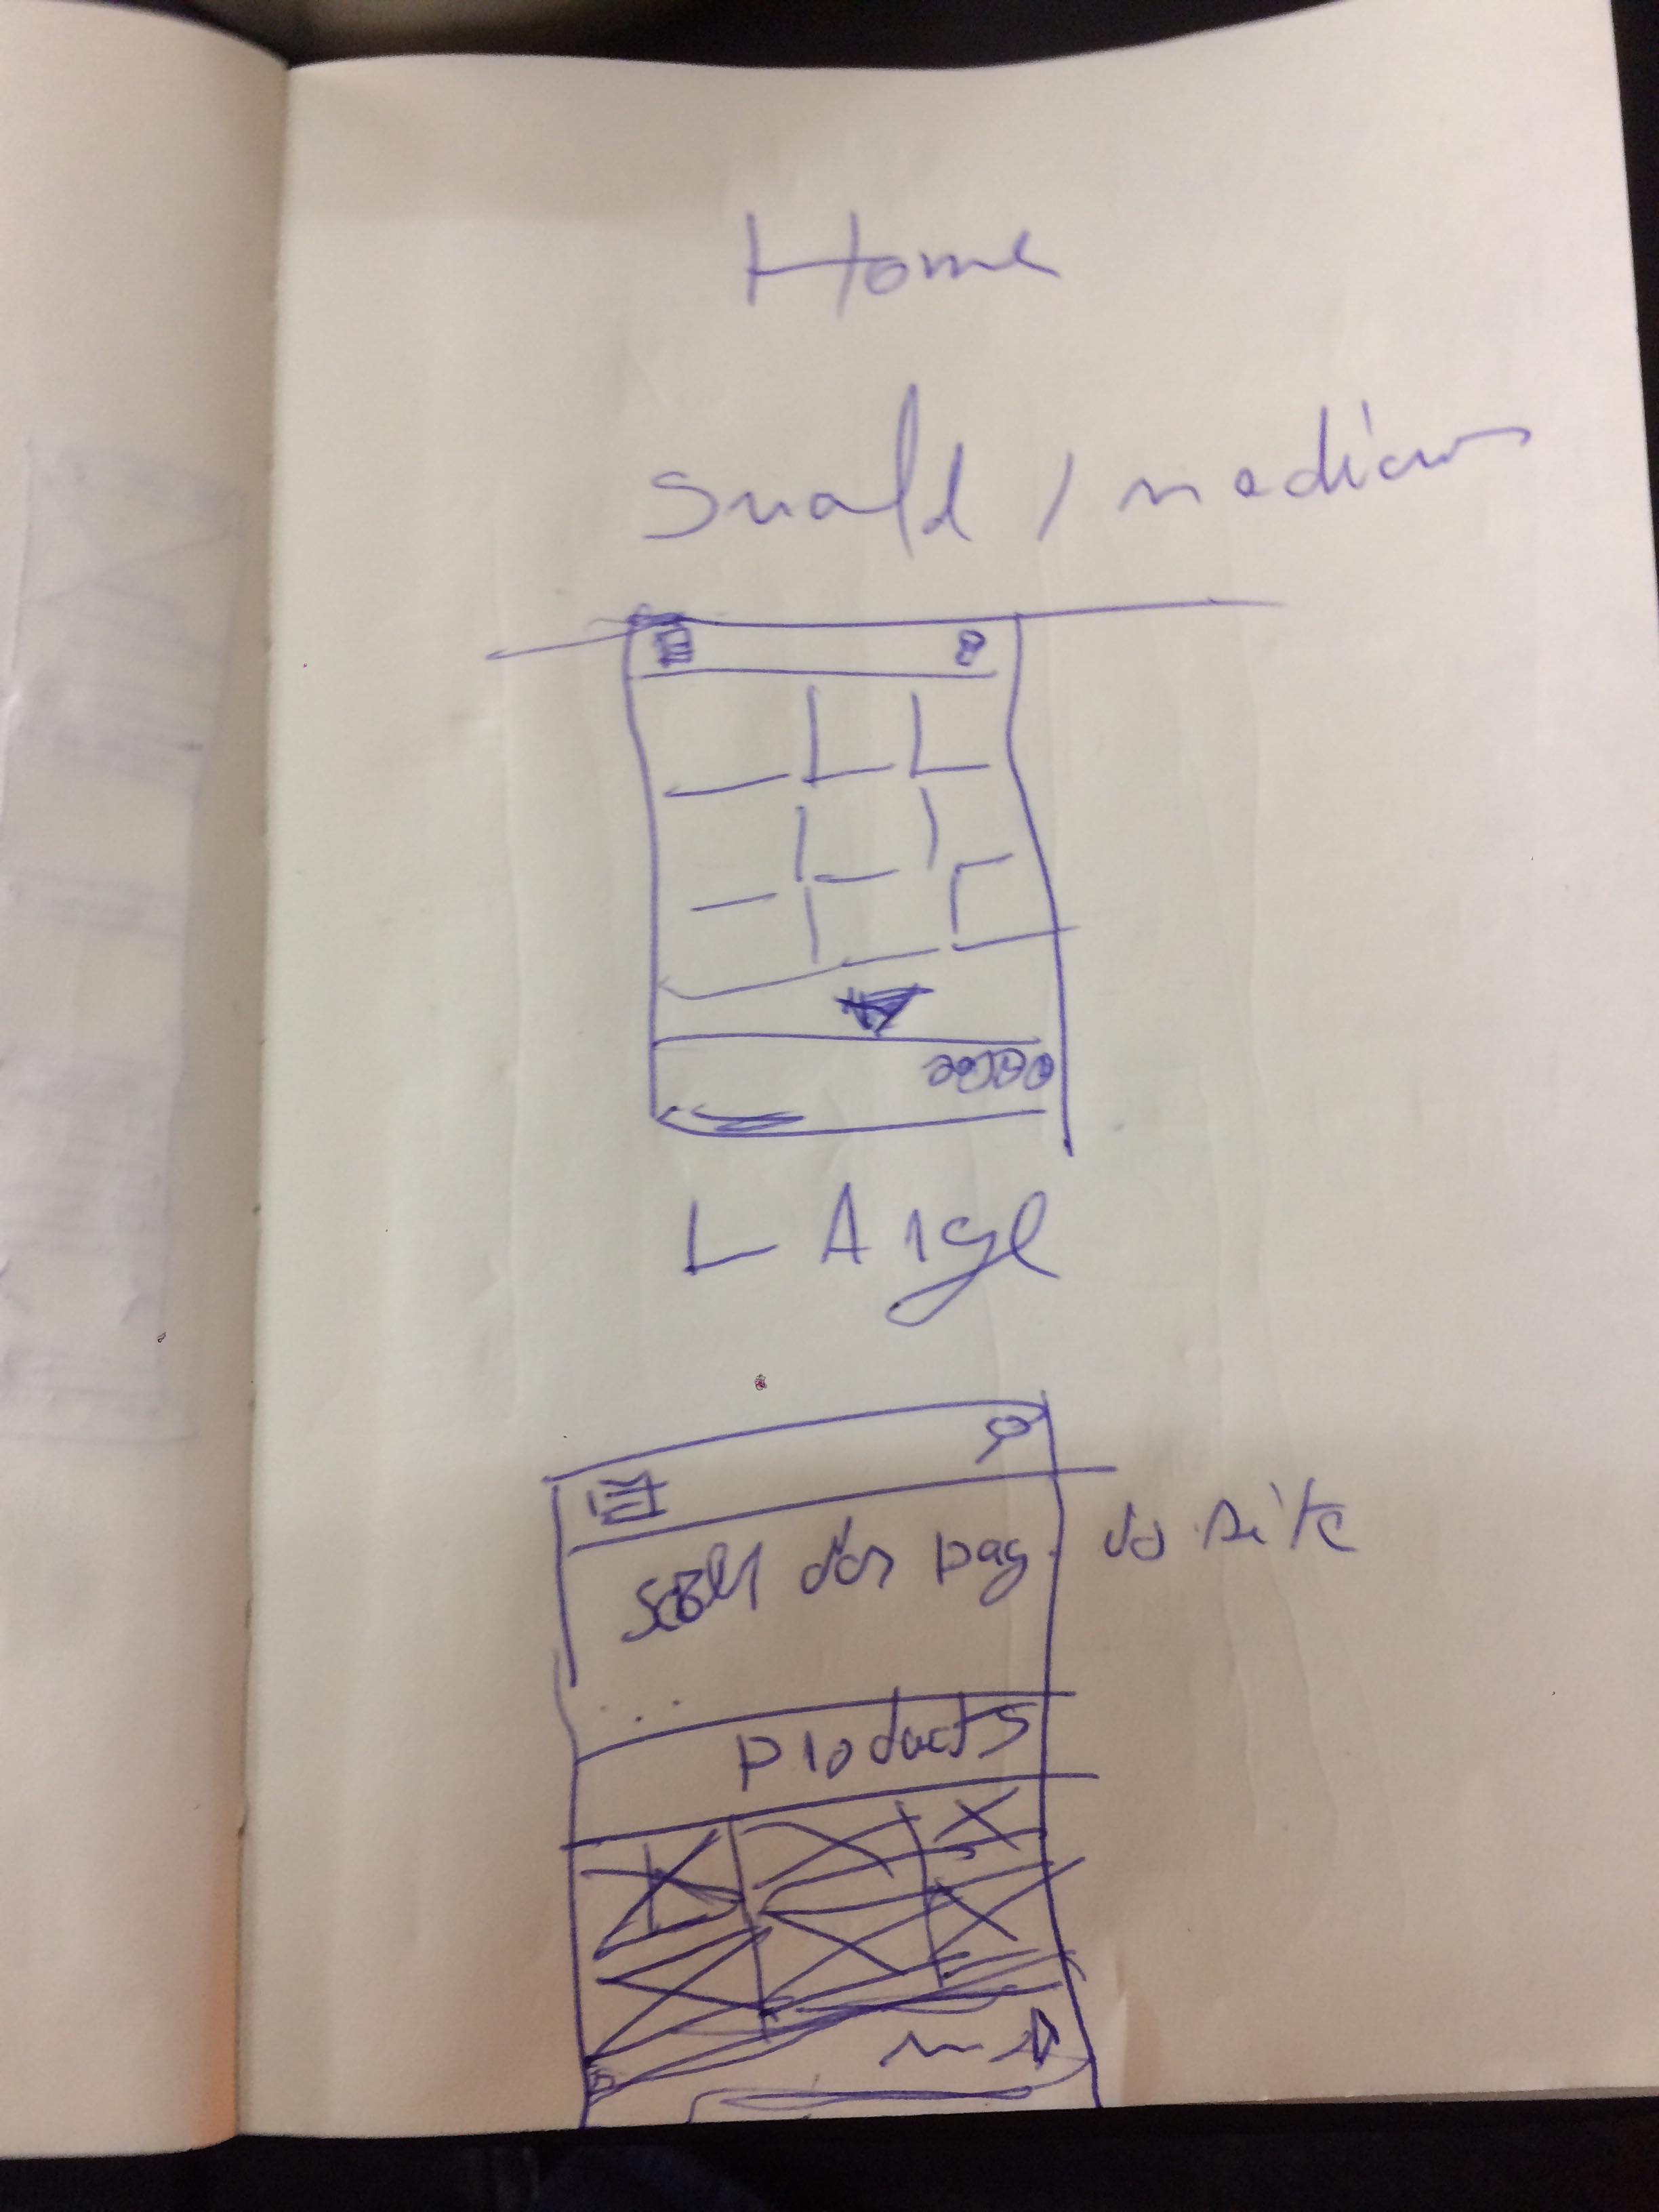 Home
Small / medium
LArge
scroll das pag. do site
Products